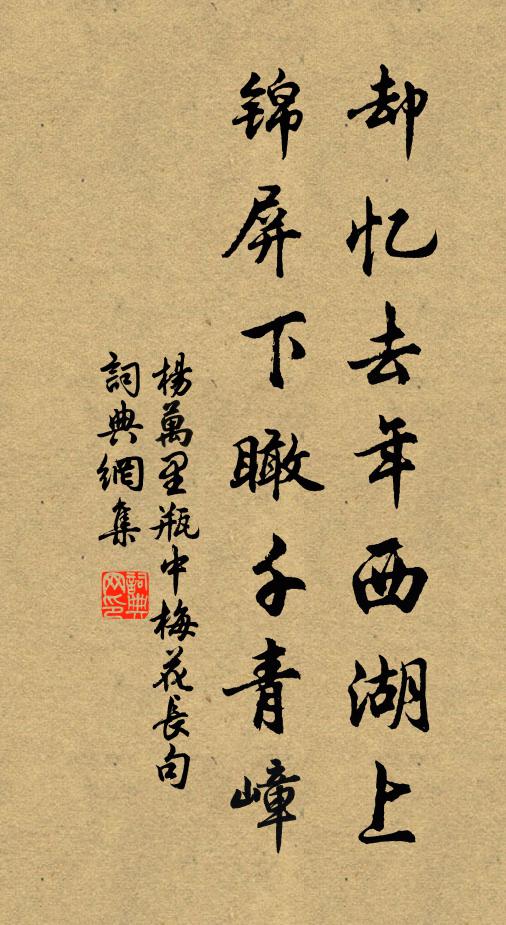 却忆去年西湖上
锦屏下瞰千青嶂
楊萬里瓶中梅花長句
詞典網集
詞典网印